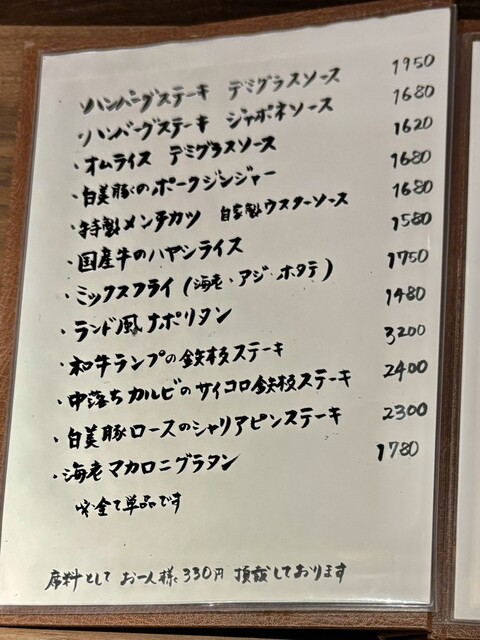 ・ハンバーグステーキ デミグラスソース 1950
・ハンバーグステーキ ジャポネソース 1680
・オムライス デミグラスソース 1620
・白美豚のポークジンジャー 1680
・特製メンチカツ 自家製ウスターソース 1680
・国産牛のハヤシライス 1580
・ミックスフライ(海老・アジ・ホタテ) 1750
・ランド風ナポリタン 1480
・和牛ランプの鉄板ステーキ 3200
・中落ちカルビのサイコロ鉄板ステーキ 2400
・白美豚ロースのシャリアピンステーキ 2300
・海老マカロニグラタン 1780
※全て単品です
席料として お一人様 330円 頂戴しております